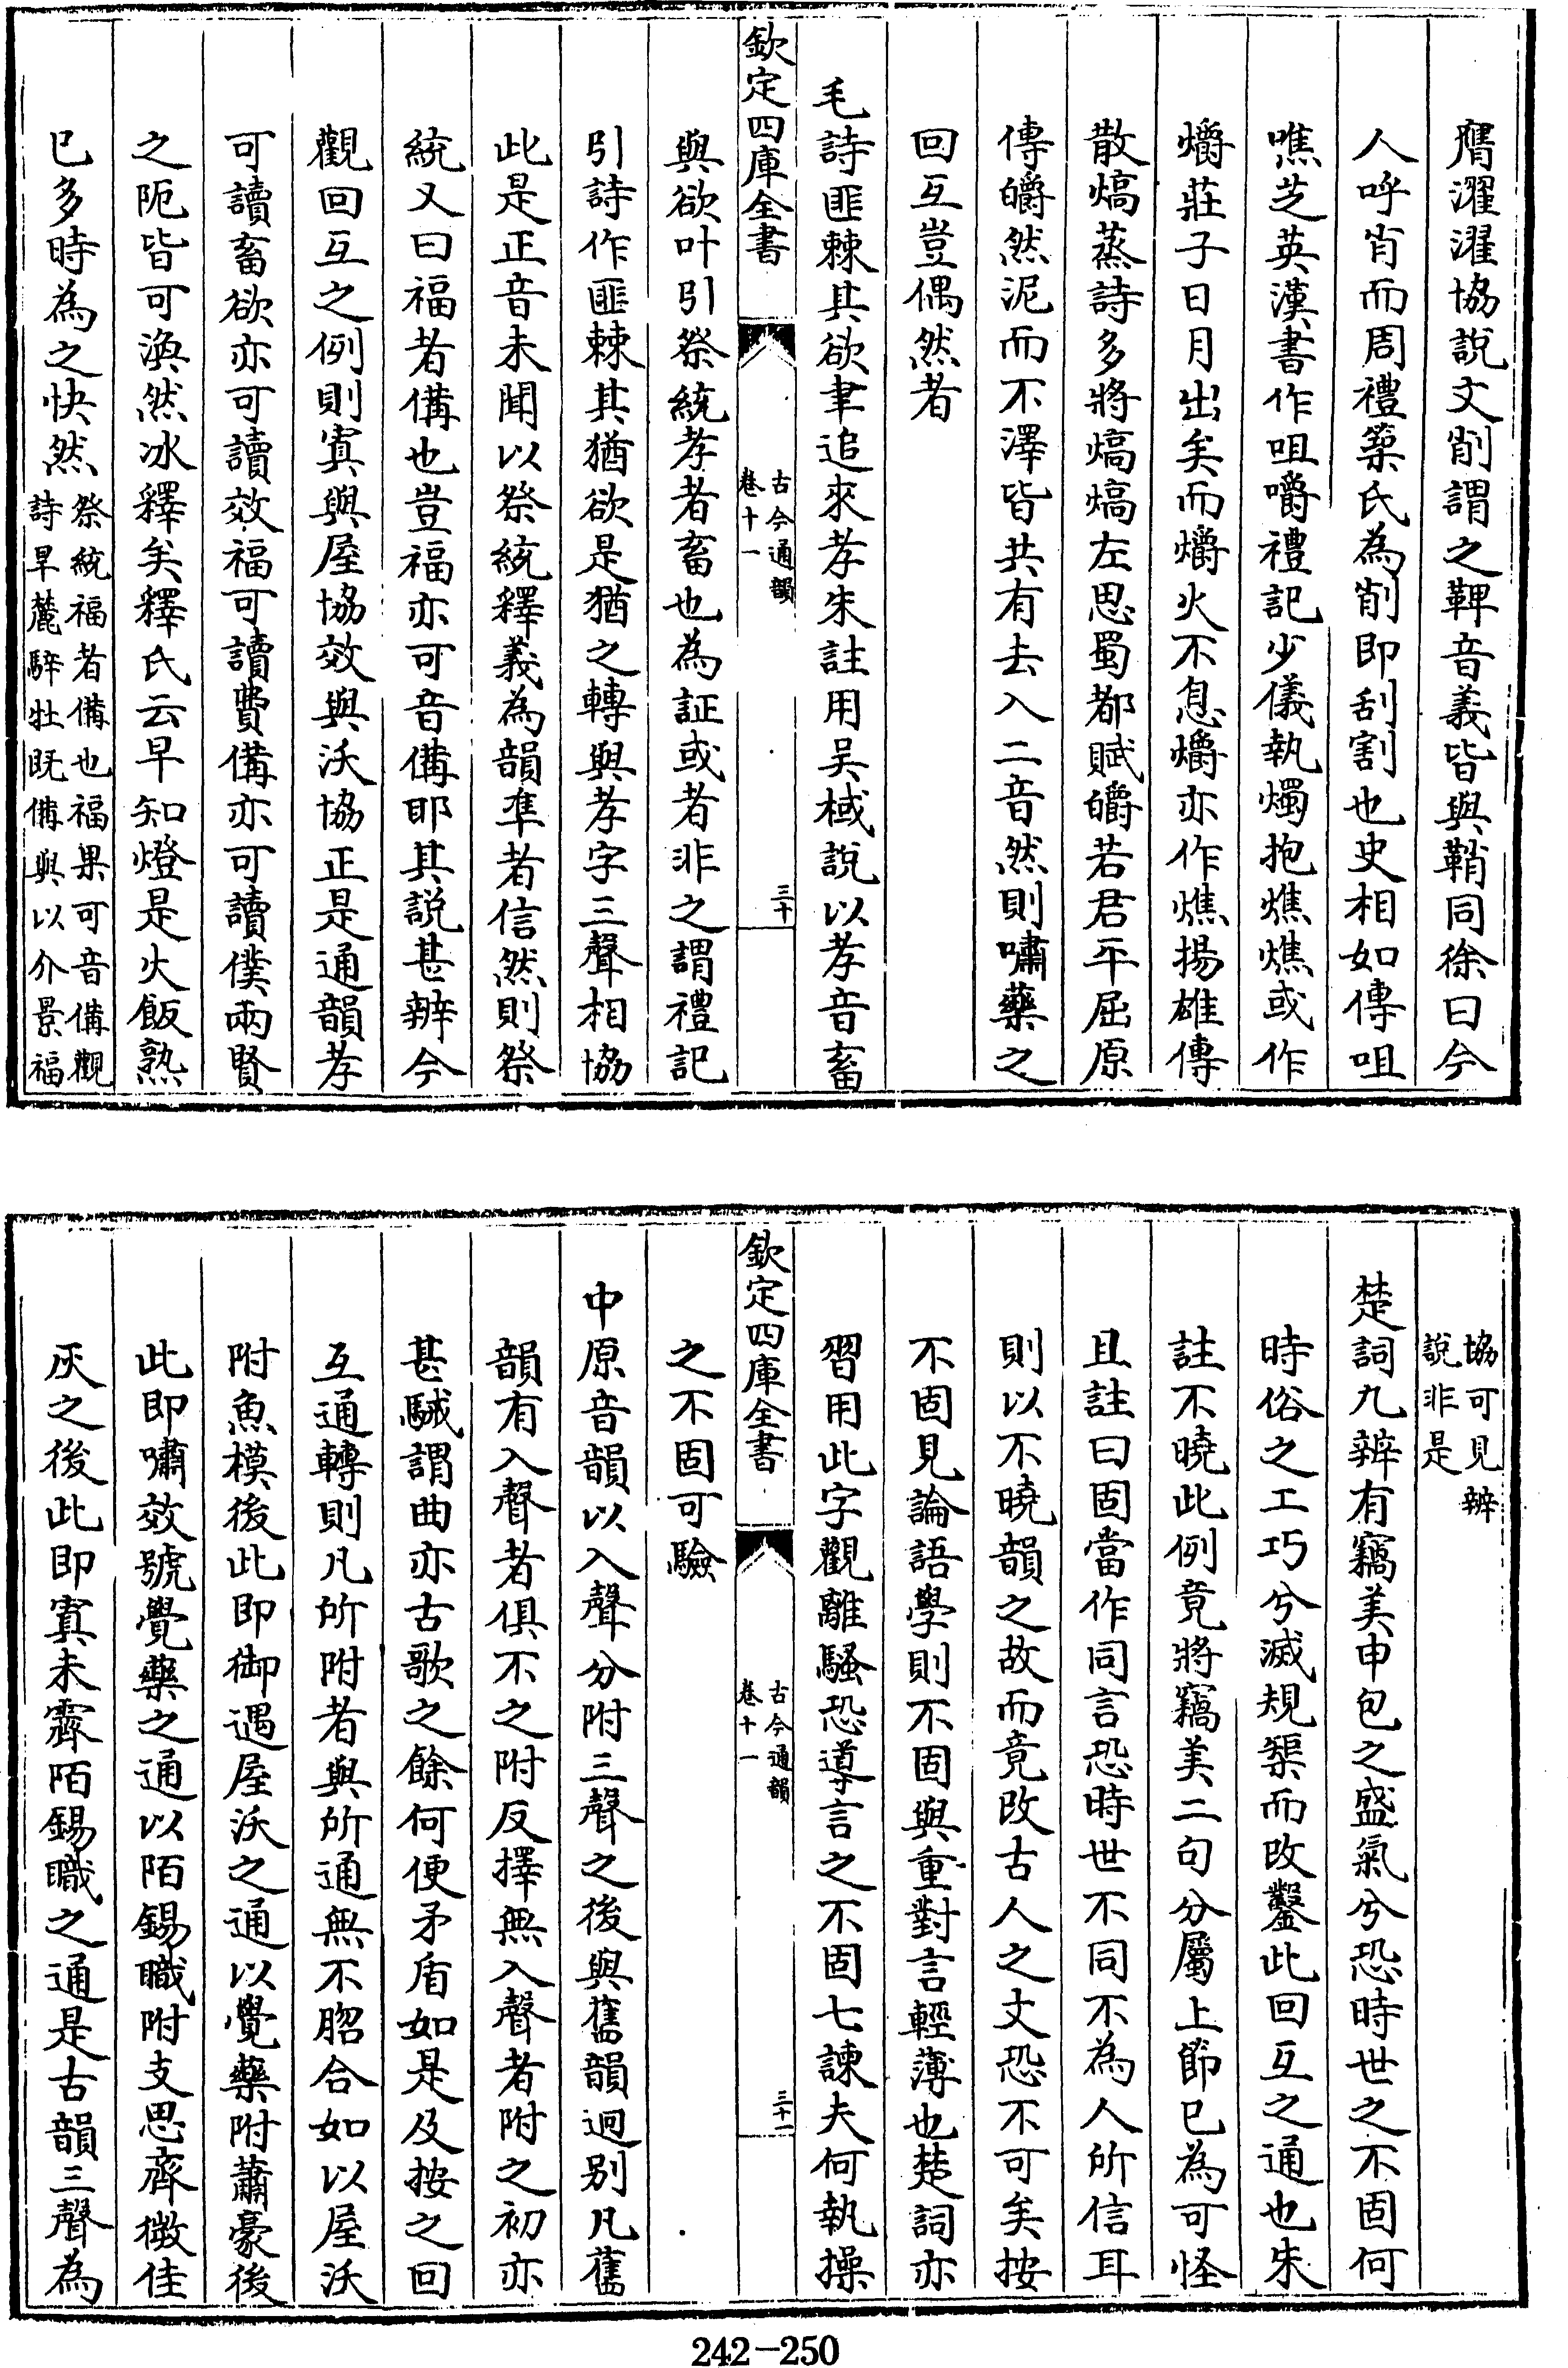 膺濯濯協說文削謂之鞞音義皆與鞘同徐曰今
人呼肖而周禮築氏為削即刮割也史相如傳咀
噍芝英漢書作咀嚼禮記少儀執燭抱燋燋或作
爝莊子日月出矣而爝火不息爝亦作燋揚雄傳
散熇蒸詩多將熇熇左思蜀都賦皭若君平屈原
傳皭然泥而不滓皆共有去入二音然則嘯藥之
回互豈偶然者
毛詩匪棘其欲聿追來孝朱註用吳棫說以孝音畜
欽定四庫全書
古今通韻
卷十一
三十
與欲叶引祭統孝者畜也為証或者非之謂禮記
引詩作匪棘其猶欲是猶之轉與孝字三聲相協
此是正音未聞以祭統釋義為韻準者信然則祭
統又曰福者備也豈福亦可音備耶其説甚辨今
觀回互之例則寘與屋協效與沃協正是通韻孝
可讀畜欲亦可讀效福可讀費備亦可讀僕兩賢
之阨皆可渙然冰釋矣釋氏云早知燈是火飯熟
已多時為之快然
祭統福者備也福果可音備觀
詩旱麓騂牡既備與以介景福
協可見辨
說非是
楚詞九辨有竊美申包之盛氣兮恐時世之不固何
時俗之工巧兮滅規榘而改鑿此回互之通也朱
註不曉此例竟將竊美二句分屬上節已為可怪
且註曰固當作同言恐時世不同不為人所信耳
則以不曉韻之故而竟改古人之文恐不可矣按
不固見論語學則不固與重對言輕薄也楚詞亦
習用此字觀離騷恐導言之不固七諫夫何執操
欽定四庫全書
古今通韻
卷十一
三十一
之不固可驗
中原音韻以入聲分附三聲之後與舊韻迥别凡舊
韻有入聲者俱不之附反擇無入聲者附之初亦
甚駴謂曲亦古歌之餘何便矛盾如是及按之回
互通轉則凡所附者與所通無不脗合如以屋沃
附魚模後此即御遇屋沃之通以覺藥附蕭豪後
此即嘯效號覺藥之通以陌錫職附支思齊微佳
灰之後此即寘未霽陌錫職之通是古韻三聲為
242-250